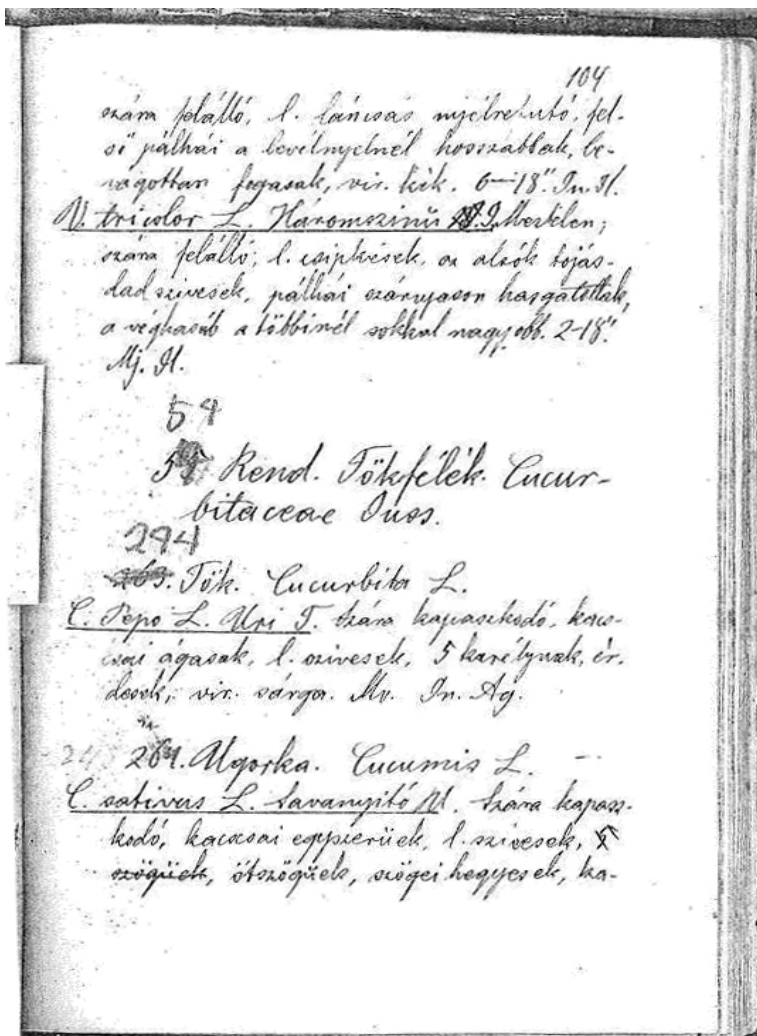 104
szára felálló, l. láncsás nyélrefutó, fel-
ső pálhái a levélnyelnél hosszabbak, be-
vagottan fogasak, vir. kék. 6-18". In. Il.
V. tricolor L. Háromszinü I. Meztelen;
szára felálló; l. csipkések, az alsók tojás-
dad szivesek, pálhái szárnyason hasgatottak,
a véghasáb a többinél sokkal nagyobb. 2-18".
Mj. Il.
54
55 Rend. Tökfélék. Cucur-
bitaceae Juss.
294
263. Tök. Cucurbita L.
C. Pepo L. Uri T. Szára kapaszkodó, kacs-
csai ágasak, l. szivesek, 5 karélynak, ér-
desek, vir. sárga. Mv. In. Ag.
264. Ugorka. Cucumis L.
C. sativus L. Savanyitó U. Szára kapasz-
kodó, kacscsai egyszerüek, l. szivesek, 5
szögüek, ötszögüek, szögei hegyesek, ka-